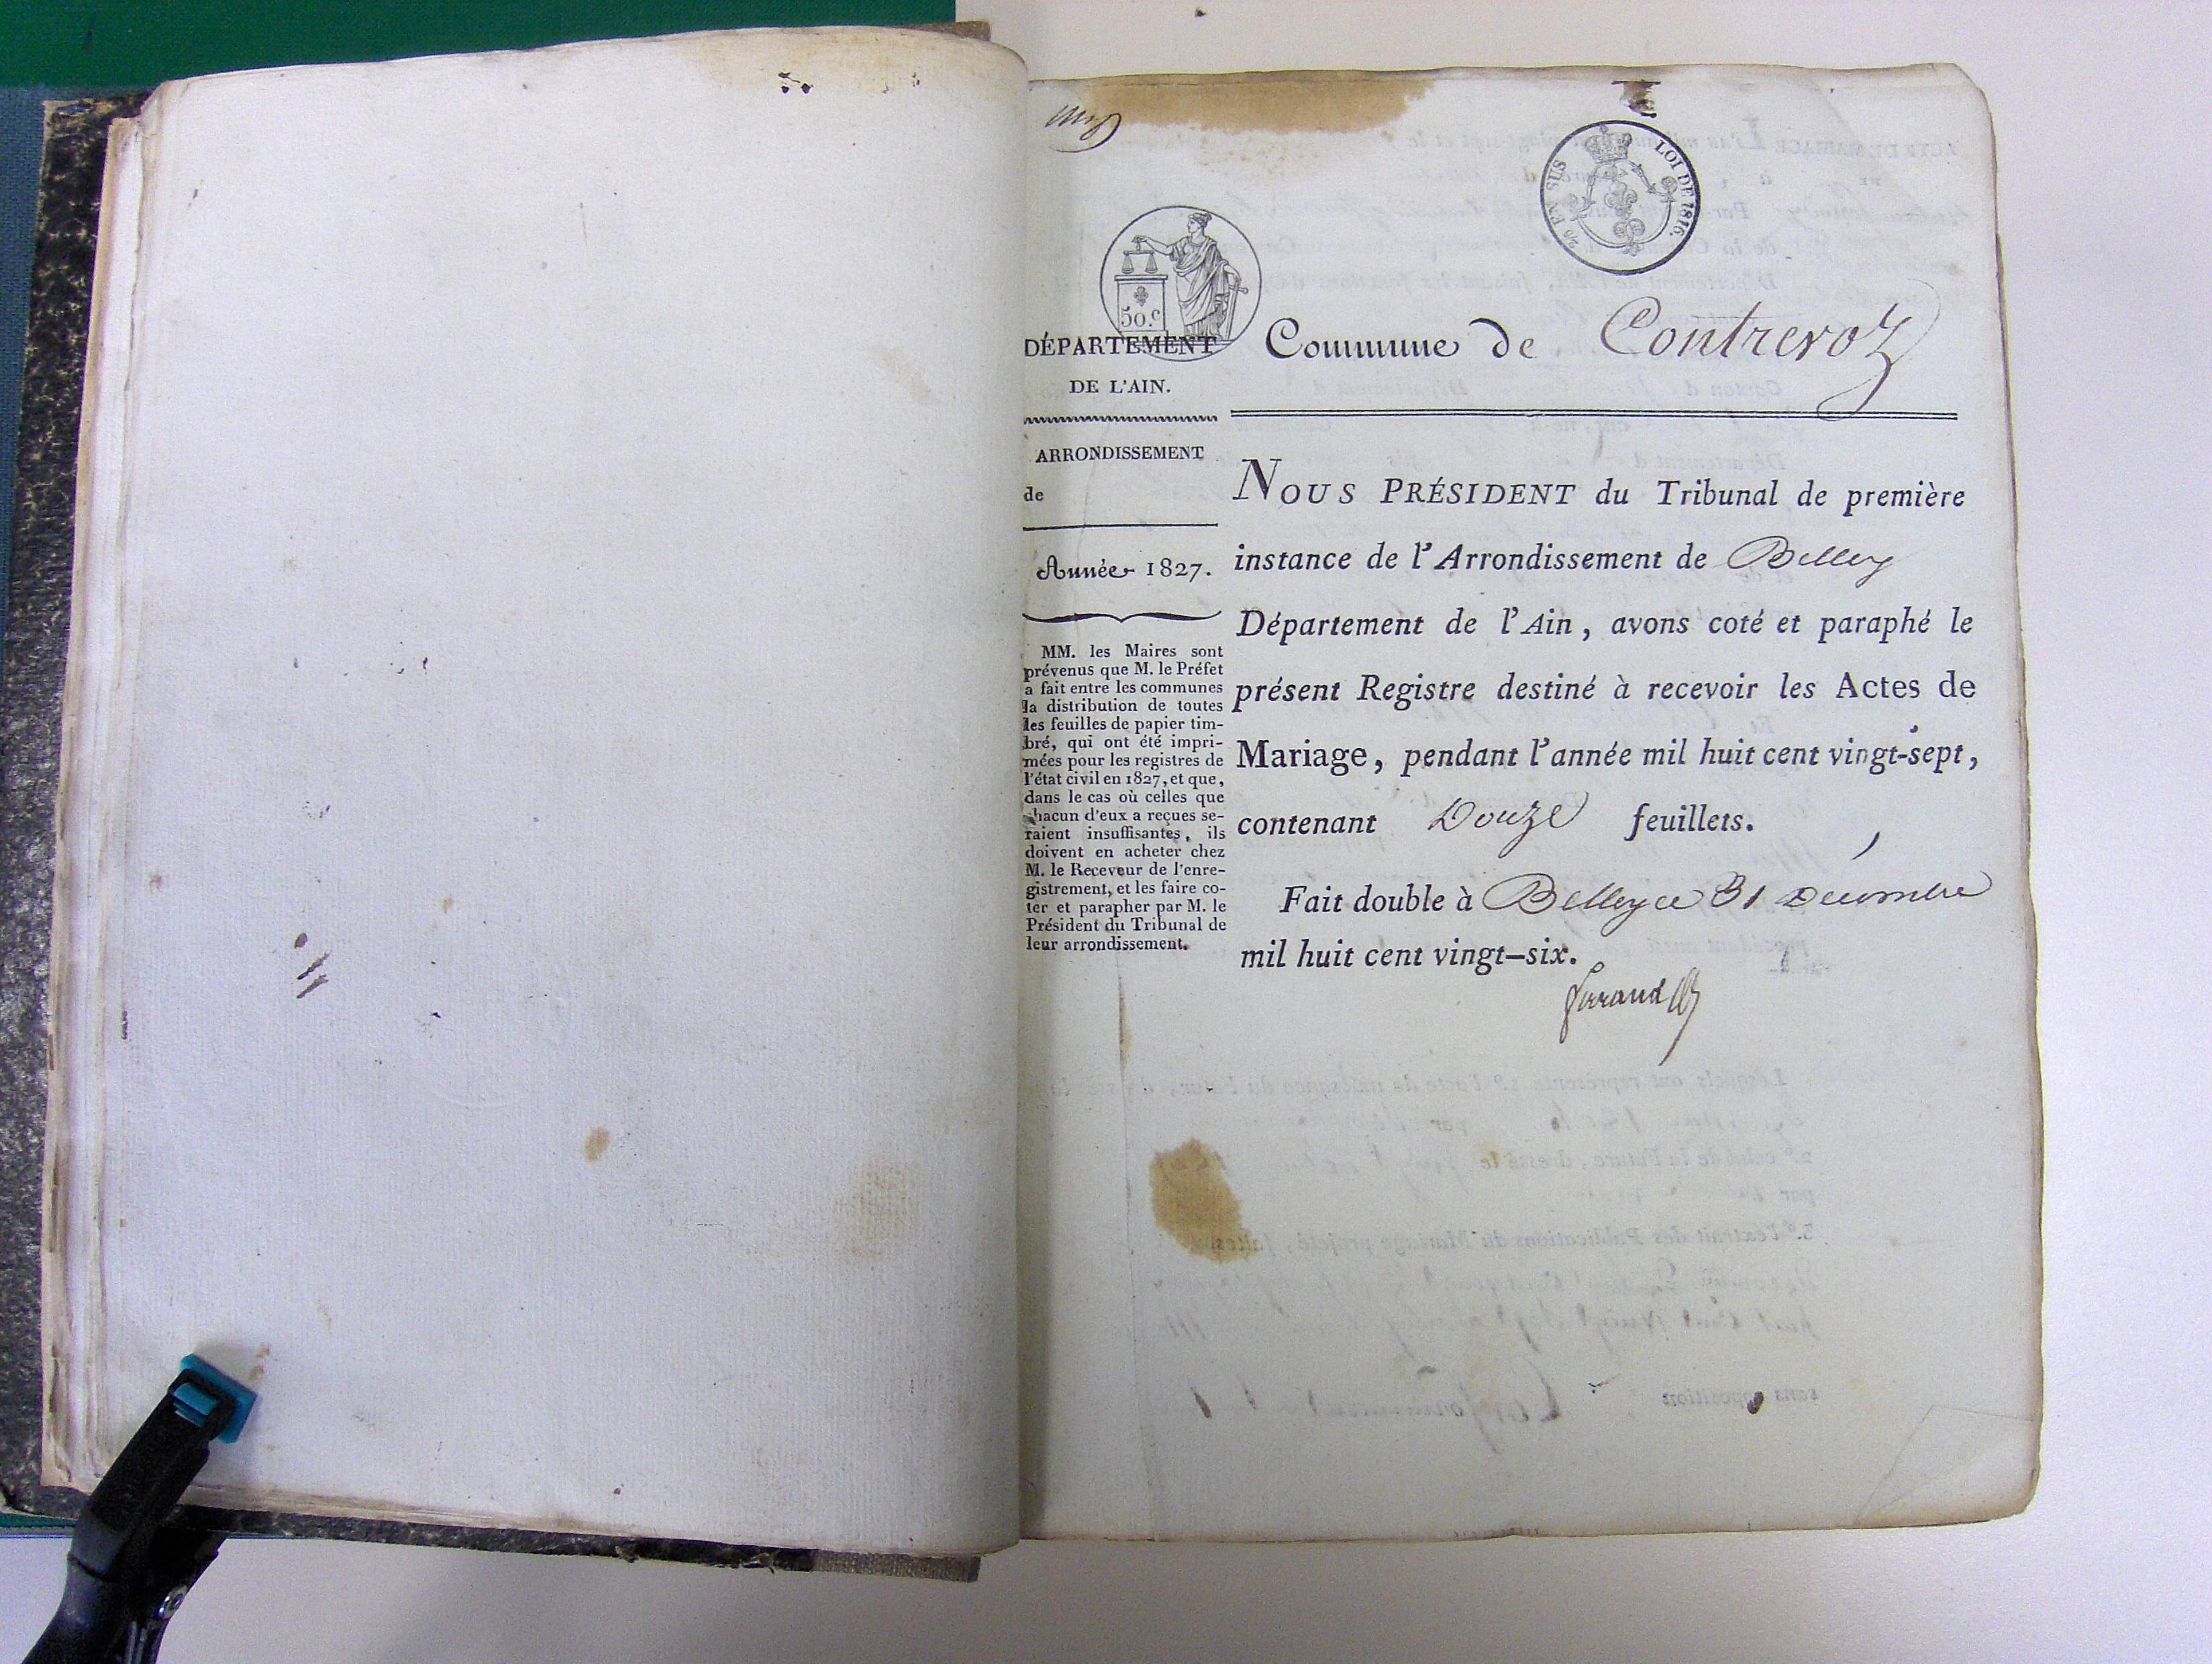 LOI DE 1816.
EN SUS
50.c
DÉPARTEMENT
DE L'AIN.
ARRONDISSEMENT
de
Année 1827.
MM. les Maires sont
prévenus que M. le Préfet
a fait entre les communes
la distribution de toutes
les feuilles de papier tim-
bré, qui ont été impri-
mées pour les registres de
l'état civil en 1827, et que,
dans le cas où celles que
chacun d'eux a reçues se-
raient insuffisantes, ils
doivent en acheter chez
M. le Receveur de l'enre-
gistrement, et les faire co-
ter et parapher par M. le
Président du Tribunal de
leur arrondissement.
Commune de Contrevoz
NOUS PRÉSIDENT du Tribunal de première
instance de l'Arrondissement de Belley
Département de l'Ain, avons coté et paraphé le
présent Registre destiné à recevoir les Actes de
Mariage, pendant l'année mil huit cent vingt-sept,
contenant Douze feuillets.
Fait double à Belley ce 31 Décembre
mil huit cent vingt-six.